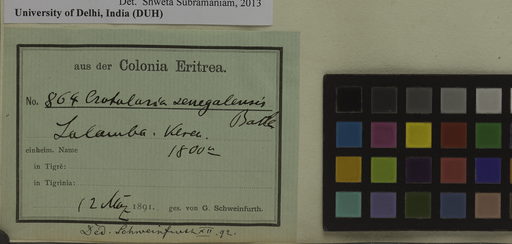 Det. Shweta Subramaniam, 2013
University of Delhi, India (DUH)
aus der Colonia Eritrea.
No. 864 Crotalaria senegalensis
Lalamba. Keren.
1800 m
einheim. Name
in Tigrè:
in Tigrinia:
12 März 1891. ges. von G. Schweinfurth.
Ded. Schweinfurth XII. 92.